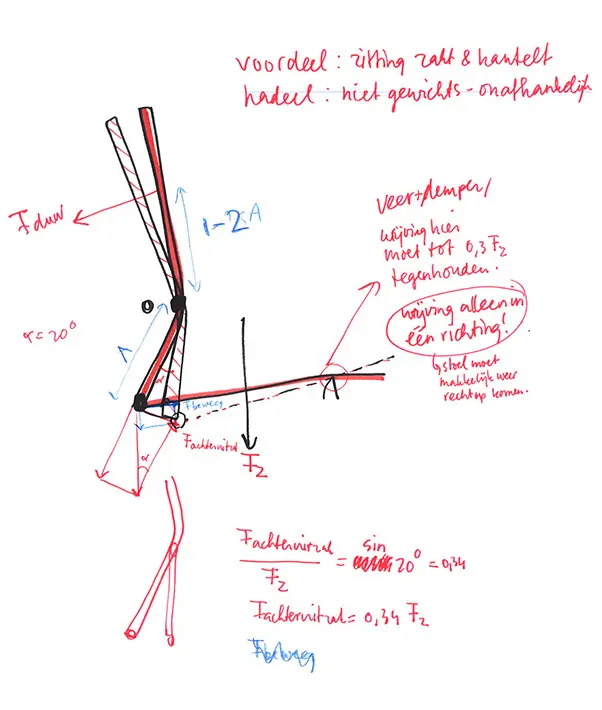 voordeel : zitting zakt & kantelt
nadeel : niet gewichts-onafhankelijk
Fduw
1-2 A
veer+demper/
wrijving hier
moet tot 0,3 F2
tegenhouden.
wrijving alleen in
één richting!
↳ stoel moet
makkelijk weer
rechtop komen.
α = 20°
1
α
Fbeweg
Fachteruitval
α
F2
Fachteruitval
F2
= sin 20° = 0,34
Fachteruitval = 0,34 F2
Fbeweg